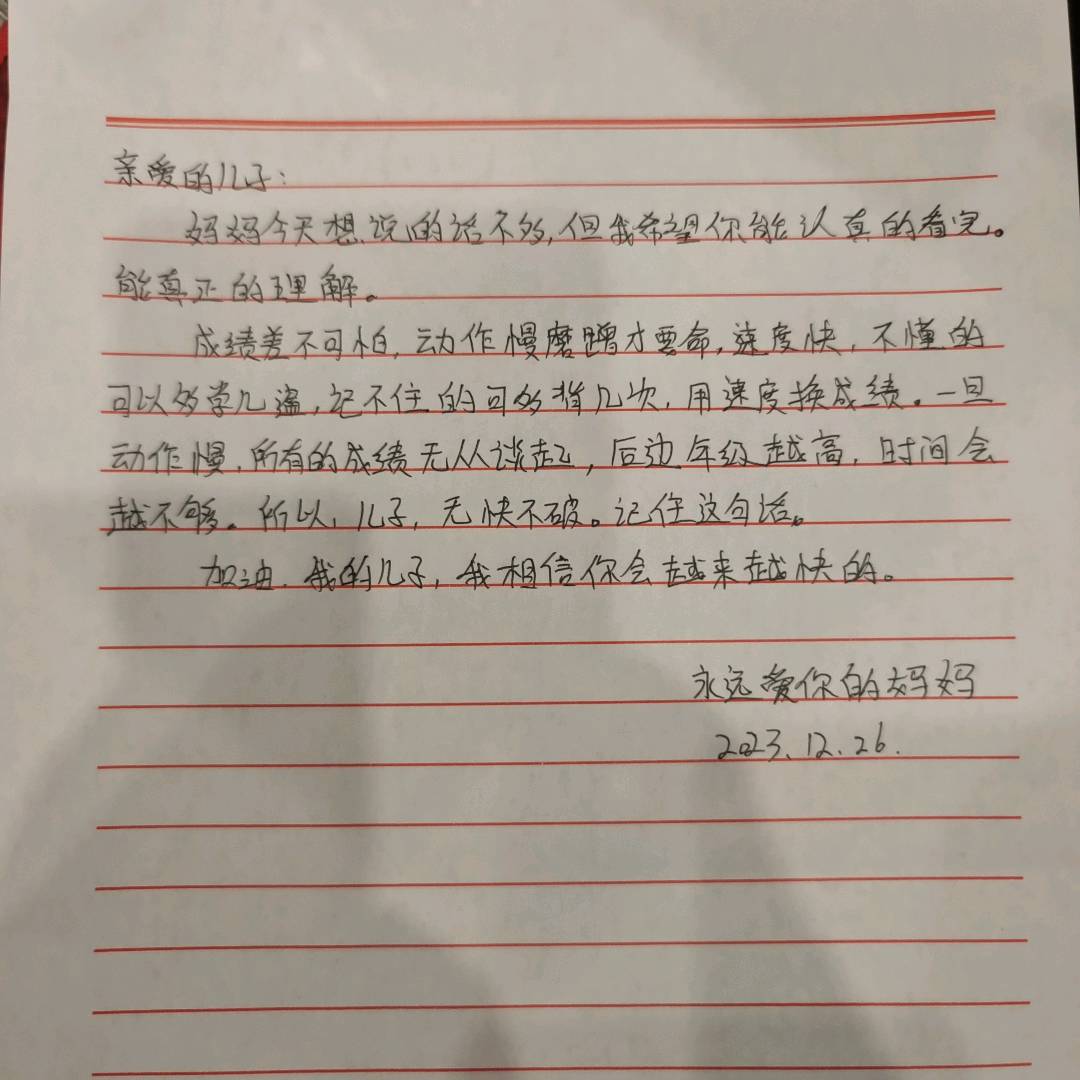 亲爱的儿子：
妈妈今天想说的话不多，但我希望你能认真的看完。
能真正的理解。
成绩差不可怕，动作慢磨蹭才要命，速度快，不懂的
可以多学几遍，记不住的可多背几次，用速度换成绩。一旦
动作慢，所有的成绩无从谈起，后边年级越高，时间会
越不够。所以，儿子，无快不破。记住这句话。
加油，我的儿子，我相信你会越来越快的。
永远爱你的妈妈
2023.12.26.